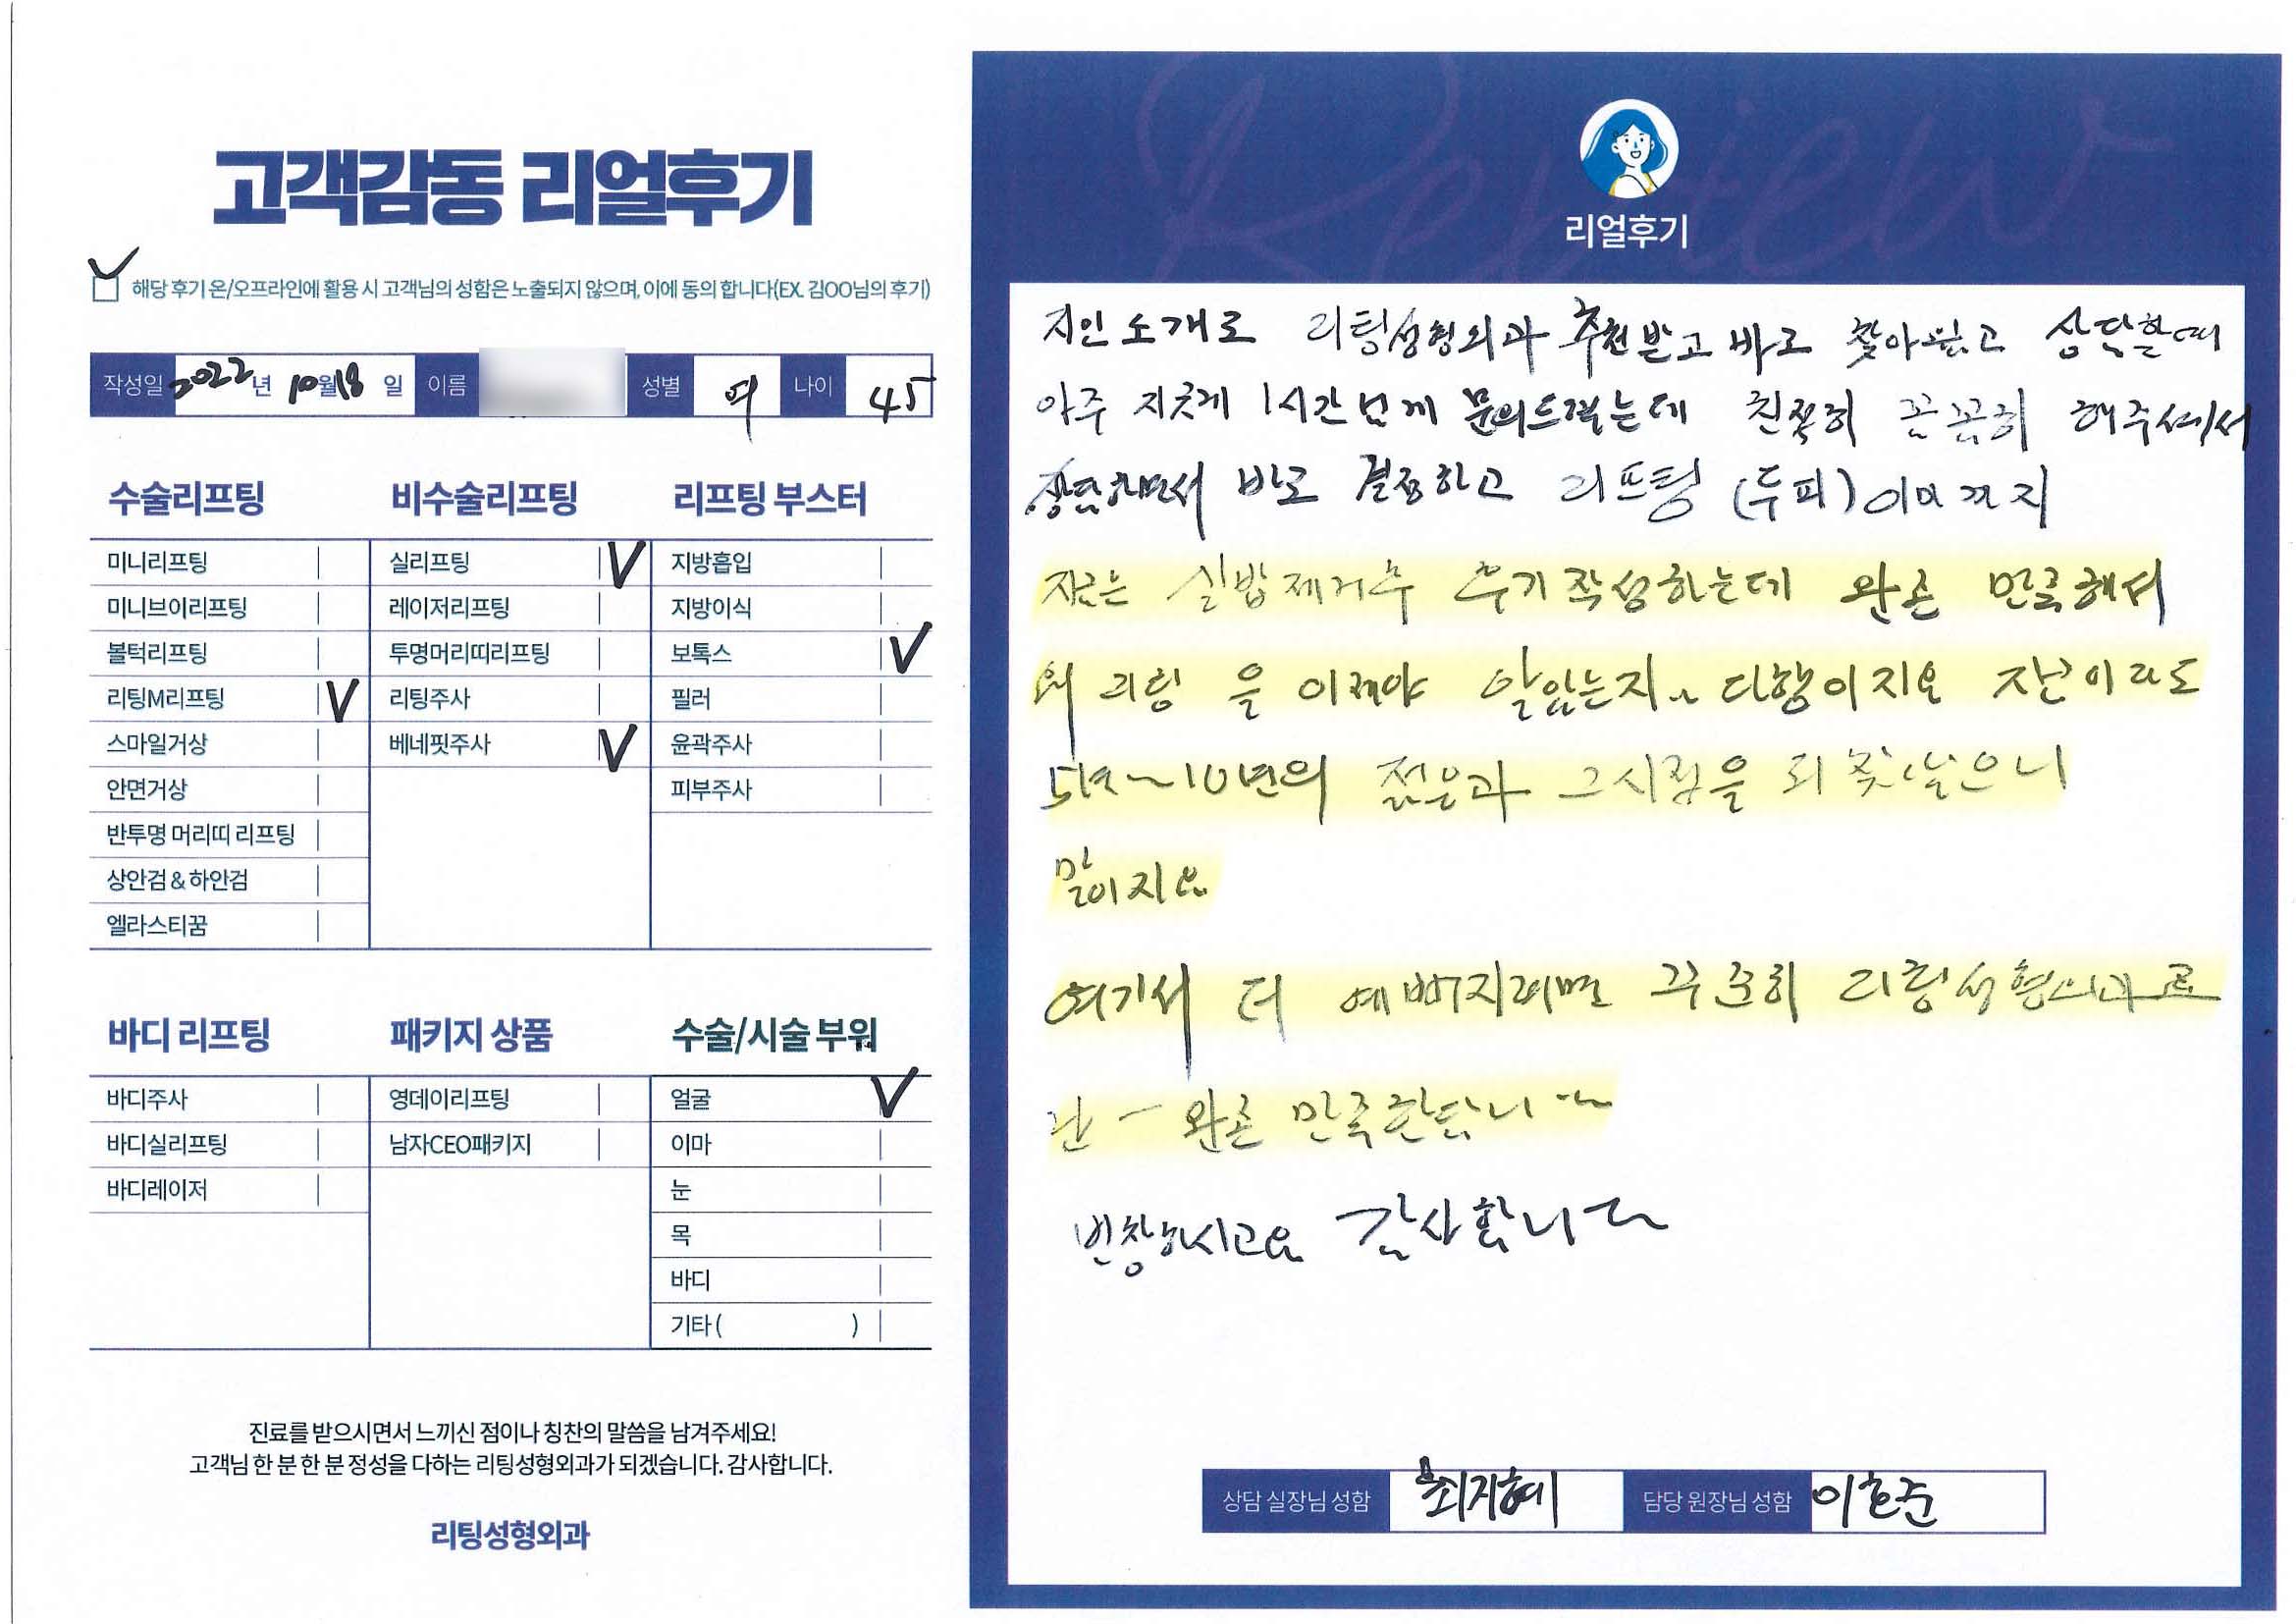 고객감동 리얼후기
해당 후기 온/오프라인에 활용 시 고객님의 성함은 노출되지 않으며, 이에 동의 합니다(EX. 김OO님의 후기)
작성일 2022년 10월 18일 이름 성별 여 나이 45
수술리프팅
미니리프팅
미니브이리프팅
볼턱리프팅
리팅M리프팅 V
스마일거상
안면거상
반투명 머리띠 리프팅
상안검 & 하안검
엘라스티꿈
비수술리프팅
실리프팅 V
레이저리프팅
투명머리띠리프팅
리팅주사
베네핏주사 V
리프팅 부스터
지방흡입
지방이식
보톡스 V
필러
윤곽주사
피부주사
바디 리프팅
바디주사
바디실리프팅
바디레이저
패키지 상품
영데이리프팅
남자CEO패키지
수술/시술 부위
얼굴 V
이마
눈
목
바디
기타 ( )
진료를 받으시면서 느끼신 점이나 칭찬의 말씀을 남겨주세요!
고객님 한 분 한 분 정성을 다하는 리팅성형외과가 되겠습니다. 감사합니다.
리팅성형외과
Review
리얼후기
지인소개로 리팅성형외과 추천받고 바로 찾아왔고 상담할때
아주 지긋게 1시간넘게 문의드렸는데 친절히 꼼꼼히 해주셔서
상담하면서 바로 결정하고 리프팅 (두피) 이마까지
지금은 실밥제거후 후기작성하는데 완존 만족해서
왜 리팅을 이제야 알았는지.. 다행이지요 지금이라도
5년~10년의 젊음과 그시점을 되찾았으니
말이지요
여기서 더 예뻐지려면 꾸준히 리팅성형외과로
난 - 완존 만족한답니다~
번창하시고요 감사합니다
상담 실장님 성함 최지혜 담당 원장님 성함 이호준